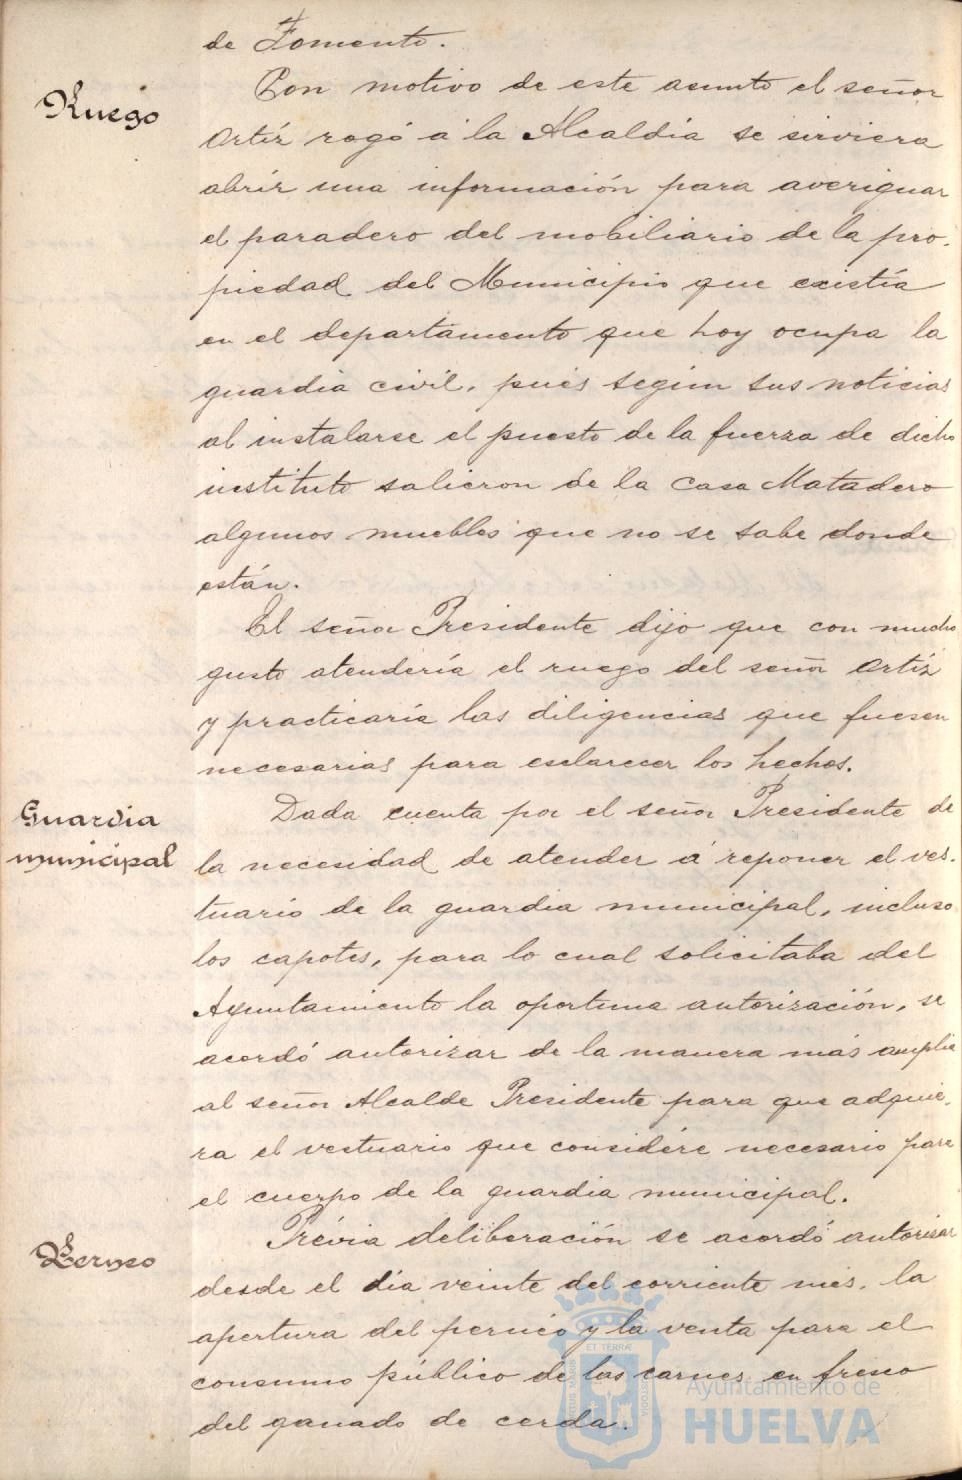 de Fomento.
Ruego
Con motivo de este asunto el señor
Ortíz rogó á la Alcaldía se sirviera
abrir una información para averiguar
el paradero del mobiliario de la pro-
piedad del Municipio que existía
en el departamento que hoy ocupa la
guardia civil, pues según sus noticias
al instalarse el puesto de la fuerza de dicho
instituto salieron de la Casa Matadero
algunos muebles que no se sabe donde
están.
El señor Presidente dijo que con mucho
gusto atendería el ruego del señor Ortíz
y practicaría las diligencias que fuesen
necesarias para esclarecer los hechos.
Guardia
municipal
Dada cuenta por el señor Presidente de
la necesidad de atender á reponer el ves-
tuario de la guardia municipal, incluso
los capotes, para lo cual solicitaba del
Ayuntamiento la oportuna autorización, se
acordó autorizar de la manera más amplia
al señor Alcalde Presidente para que adquie-
ra el vestuario que considere necesario para
el cuerpo de la guardia municipal.
Perneo
Prévia deliberación se acordó autorizar
desde el día veinte del corriente mes, la
apertura del perneo y la venta para el
consumo público de las carnes en fresco
del ganado de cerda.
ET TERRÆ
PORTUS MARIS
CUSTODIA
Ayuntamiento de
HUELVA